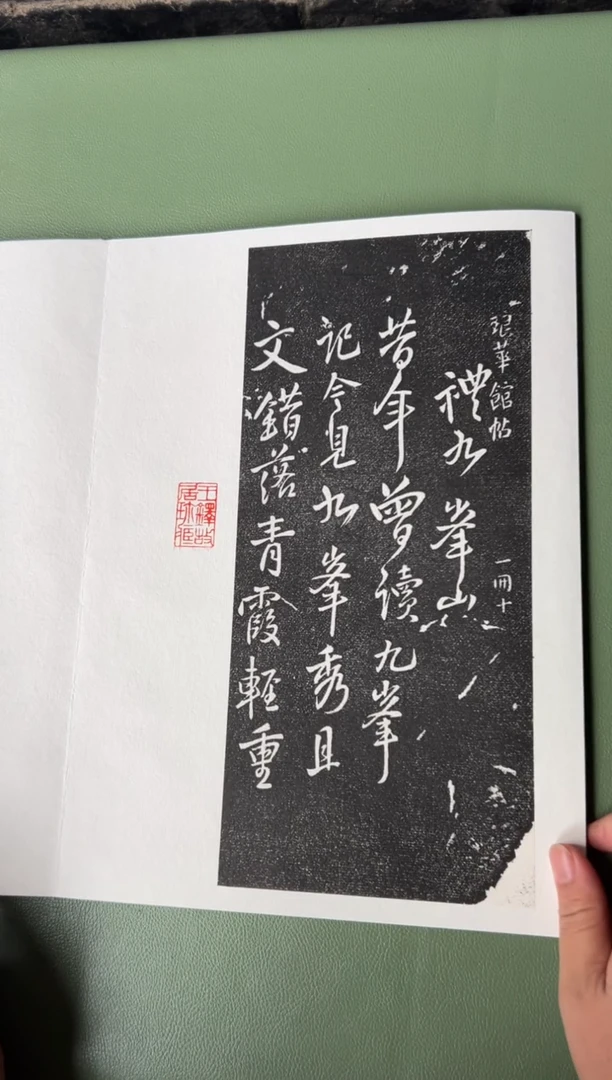 琅華館帖 一冊十
禮九峯山
昔年曾讀九峯
記今見九峯秀且
文錯落青霞輕重
王鐸故
居